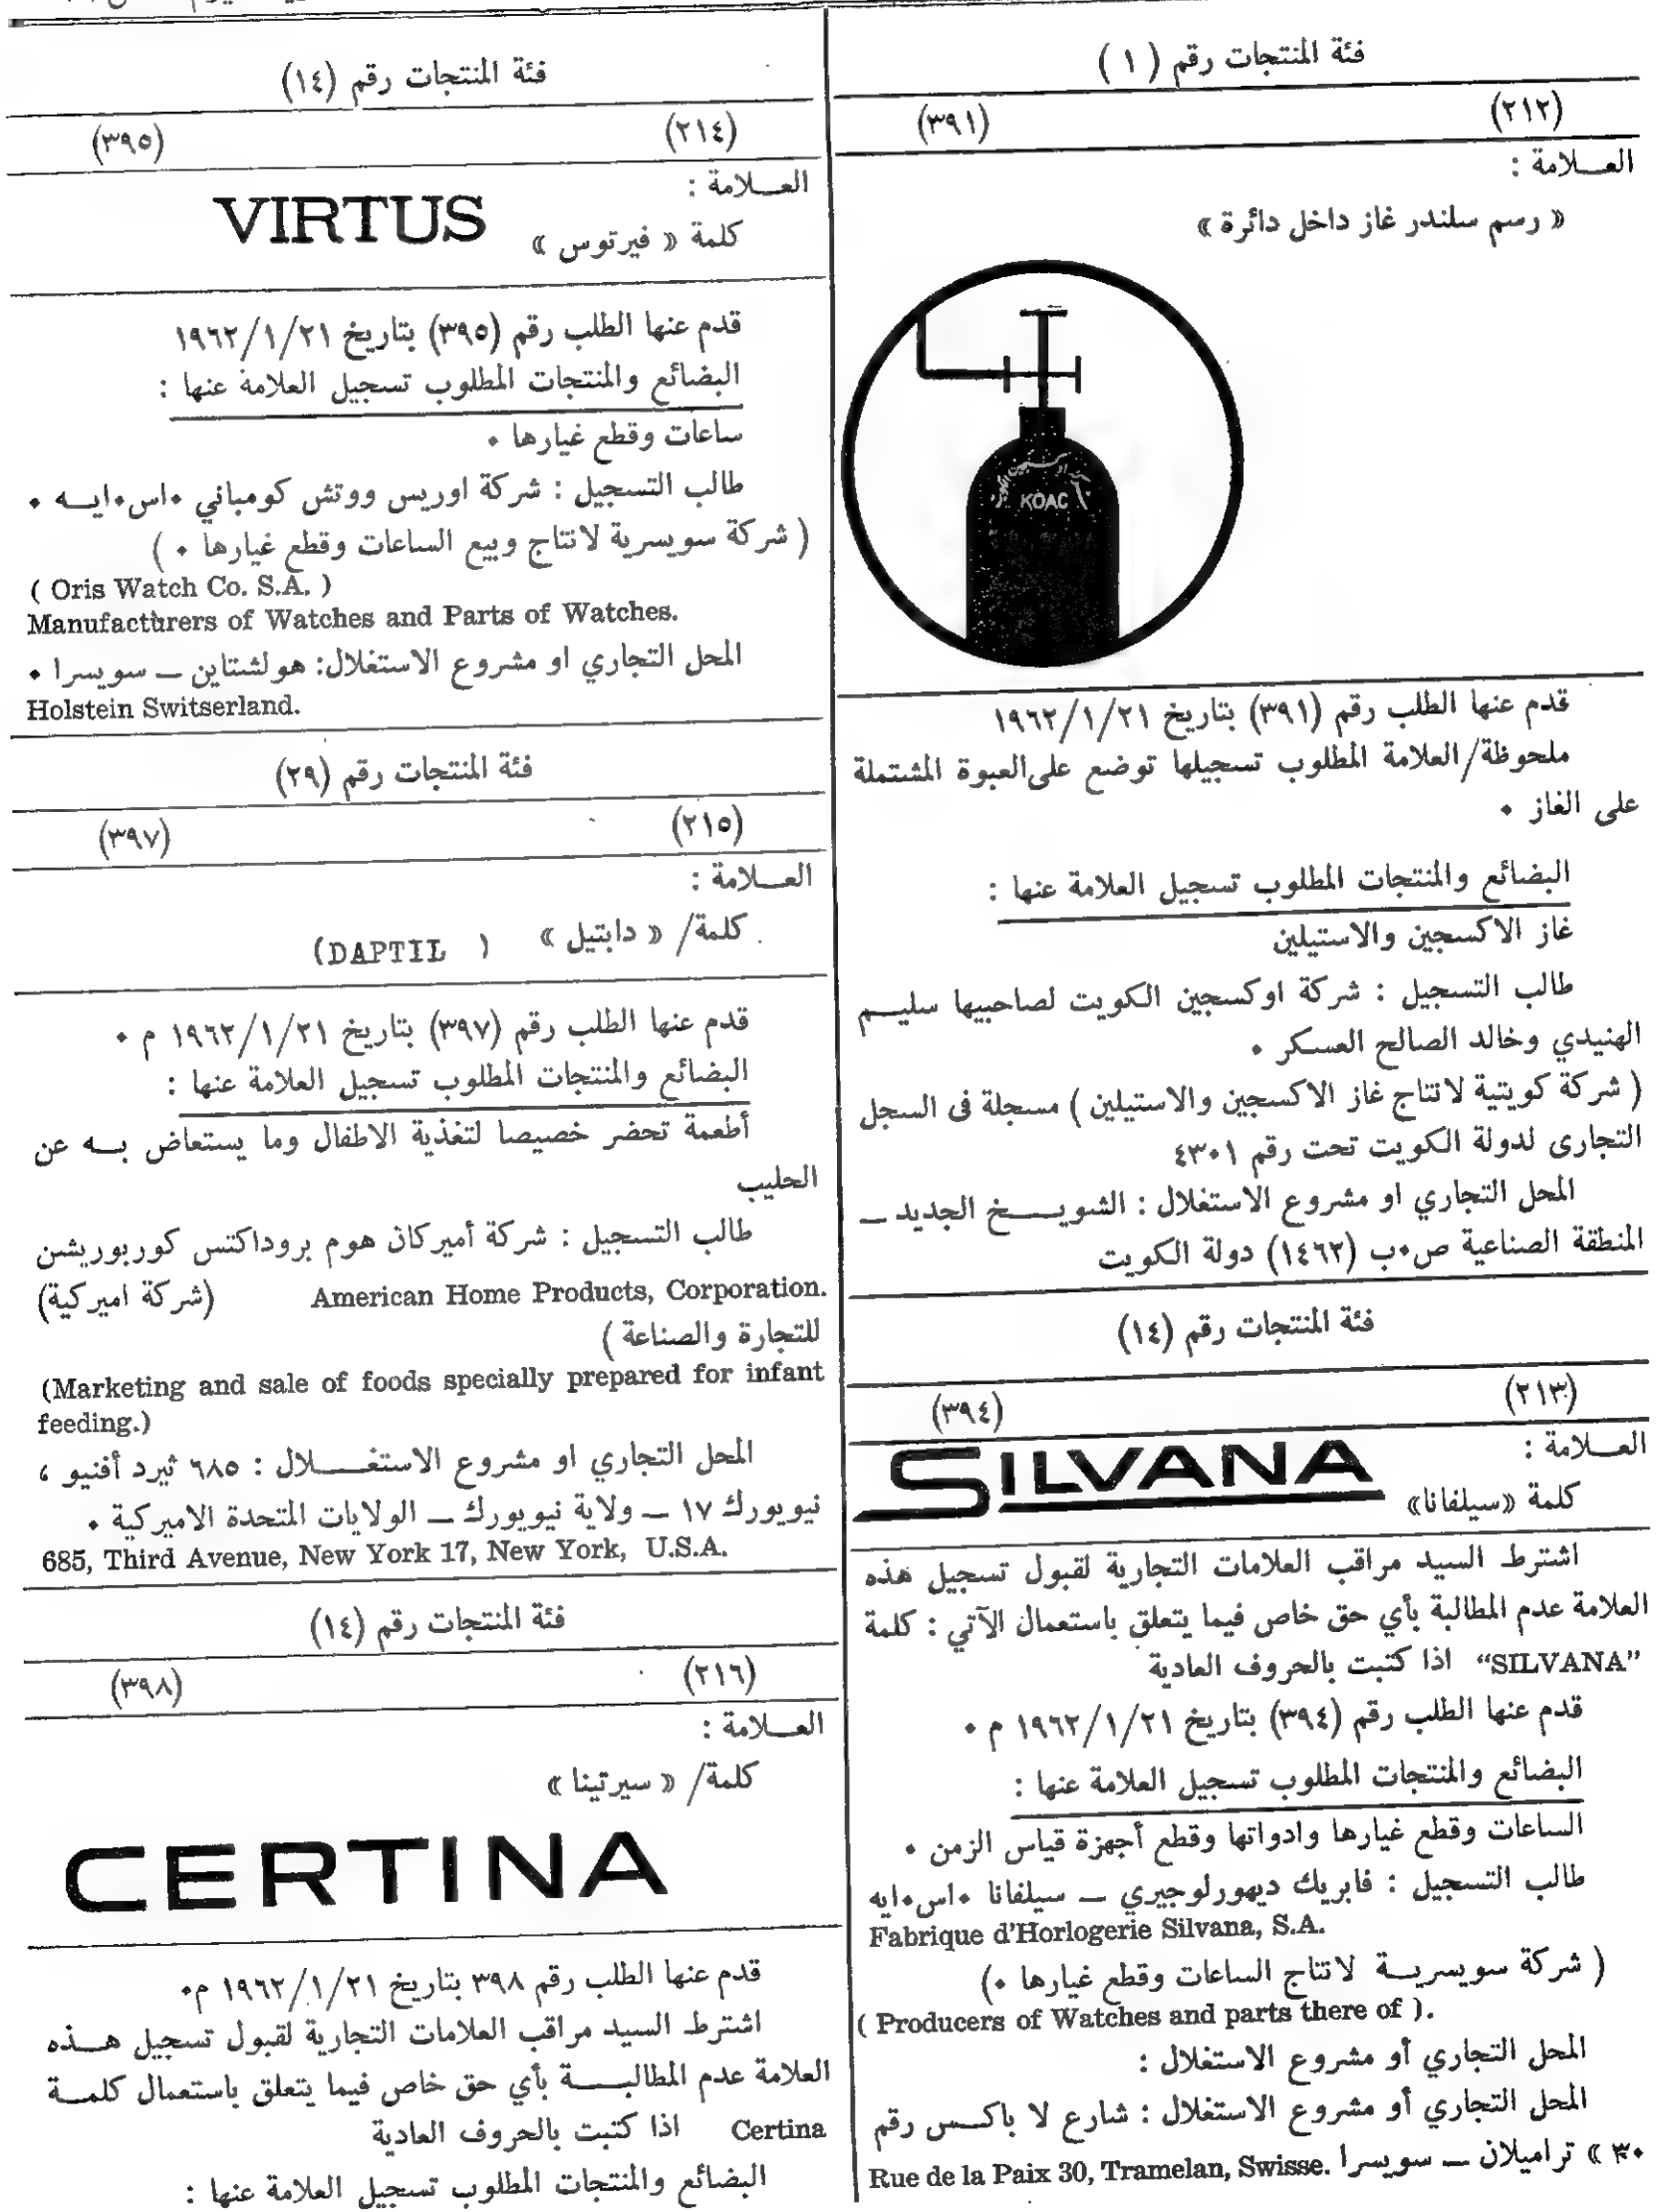 فئة المنتجات رقم ( ١ )
(٢١٢) (٣٩١)
العـــلامة :
« رسم سلندر غاز داخل دائرة »
KOAC
قدم عنها الطلب رقم (٣٩١) بتاريخ ١٩٦٢/١/٢١
ملحوظة/العلامة المطلوب تسجيلها توضع على العبوة المشتملة
على الغاز ٠
البضائع والمنتجات المطلوب تسجيل العلامة عنها :
غاز الاكسجين والاستيلين
طالب التسجيل : شركة اوكسجين الكويت لصاحبيها سليـــم
الهنيدي وخالد الصالح العسكر ٠
( شركة كويتية لانتاج غاز الاكسجين والاستيلين ) مسجلة فى السجل
التجارى لدولة الكويت تحت رقم ٤٣٠١
المحل التجاري او مشروع الاستغلال : الشويـــــخ الجديد ـــ
المنطقة الصناعية ص٠ب (١٤٦٢) دولة الكويت
فئة المنتجات رقم (١٤)
(٢١٣) (٣٩٤)
العـــلامة :
SILVANA
كلمة «سيلفانا»
اشترط السيد مراقب العلامات التجارية لقبول تسجيل هذه
العلامة عدم المطالبة بأي حق خاص فيما يتعلق باستعمال الآتي : كلمة
“SILVANA” اذا كتبت بالحروف العادية
قدم عنها الطلب رقم (٣٩٤) بتاريخ ١٩٦٢/١/٢١ م ٠
البضائع والمنتجات المطلوب تسجيل العلامة عنها :
الساعات وقطع غيارها وادواتها وقطع أجهزة قياس الزمن ٠
طالب التسجيل : فابريك ديهورلوجيري ـــ سيلفانا ٠اس٠ايه
Fabrique d'Horlogerie Silvana, S.A.
( شركة سويسريـــة لانتاج الساعات وقطع غيارها ٠)
( Producers of Watches and parts there of ).
المحل التجاري أو مشروع الاستغلال :
المحل التجاري أو مشروع الاستغلال : شارع لا باكـــس رقم
٣٠ » تراميلان ـــ سويسرا Rue de la Paix 30, Tramelan, Swisse.
فئة المنتجات رقم (١٤)
(٢١٤) (٣٩٥)
العـــلامة :
كلمة « فيرتوس » VIRTUS
قدم عنها الطلب رقم (٣٩٥) بتاريخ ١٩٦٢/١/٢١
البضائع والمنتجات المطلوب تسجيل العلامة عنها :
ساعات وقطع غيارها ٠
طالب التسجيل : شركة اوريس ووتش كومباني ٠اس٠ايـــه ٠
( شركة سويسرية لانتاج وبيع الساعات وقطع غيارها ٠ )
( Oris Watch Co. S.A. )
Manufacturers of Watches and Parts of Watches.
المحل التجاري او مشروع الاستغلال: هولشتاين ـــ سويسرا ٠
Holstein Switserland.
فئة المنتجات رقم (٢٩)
(٢١٥) (٣٩٧)
العـــلامة :
كلمة/ « دابتيل » (DAPTIL )
قدم عنها الطلب رقم (٣٩٧) بتاريخ ١٩٦٢/١/٢١ م ٠
البضائع والمنتجات المطلوب تسجيل العلامة عنها :
أطعمة تحضر خصيصا لتغذية الاطفال وما يستعاض بـــه عن
الحليب
طالب التسجيل : شركة أميركان هوم بروداكتس كوربوريشن
American Home Products, Corporation. (شركة اميركية)
للتجارة والصناعة )
(Marketing and sale of foods specially prepared for infant
feeding.)
المحل التجاري او مشروع الاستغـــــلال : ٦٨٥ ثيرد أفنيو ،
نيويورك ١٧ ـــ ولاية نيويورك ـــ الولايات المتحدة الاميركية ٠
685, Third Avenue, New York 17, New York, U.S.A.
فئة المنتجات رقم (١٤)
(٢١٦) (٣٩٨)
العـــلامة :
كلمة/ « سيرتينا »
CERTINA
قدم عنها الطلب رقم ٣٩٨ بتاريخ ١٩٦٢/١/٢١ م٠
اشترط السيد مراقب العلامات التجارية لقبول تسجيل هـــذه
العلامة عدم المطالبـــــة بأي حق خاص فيما يتعلق باستعمال كلمـــة
Certina اذا كتبت بالحروف العادية
البضائع والمنتجات المطلوب تسجيل العلامة عنها :